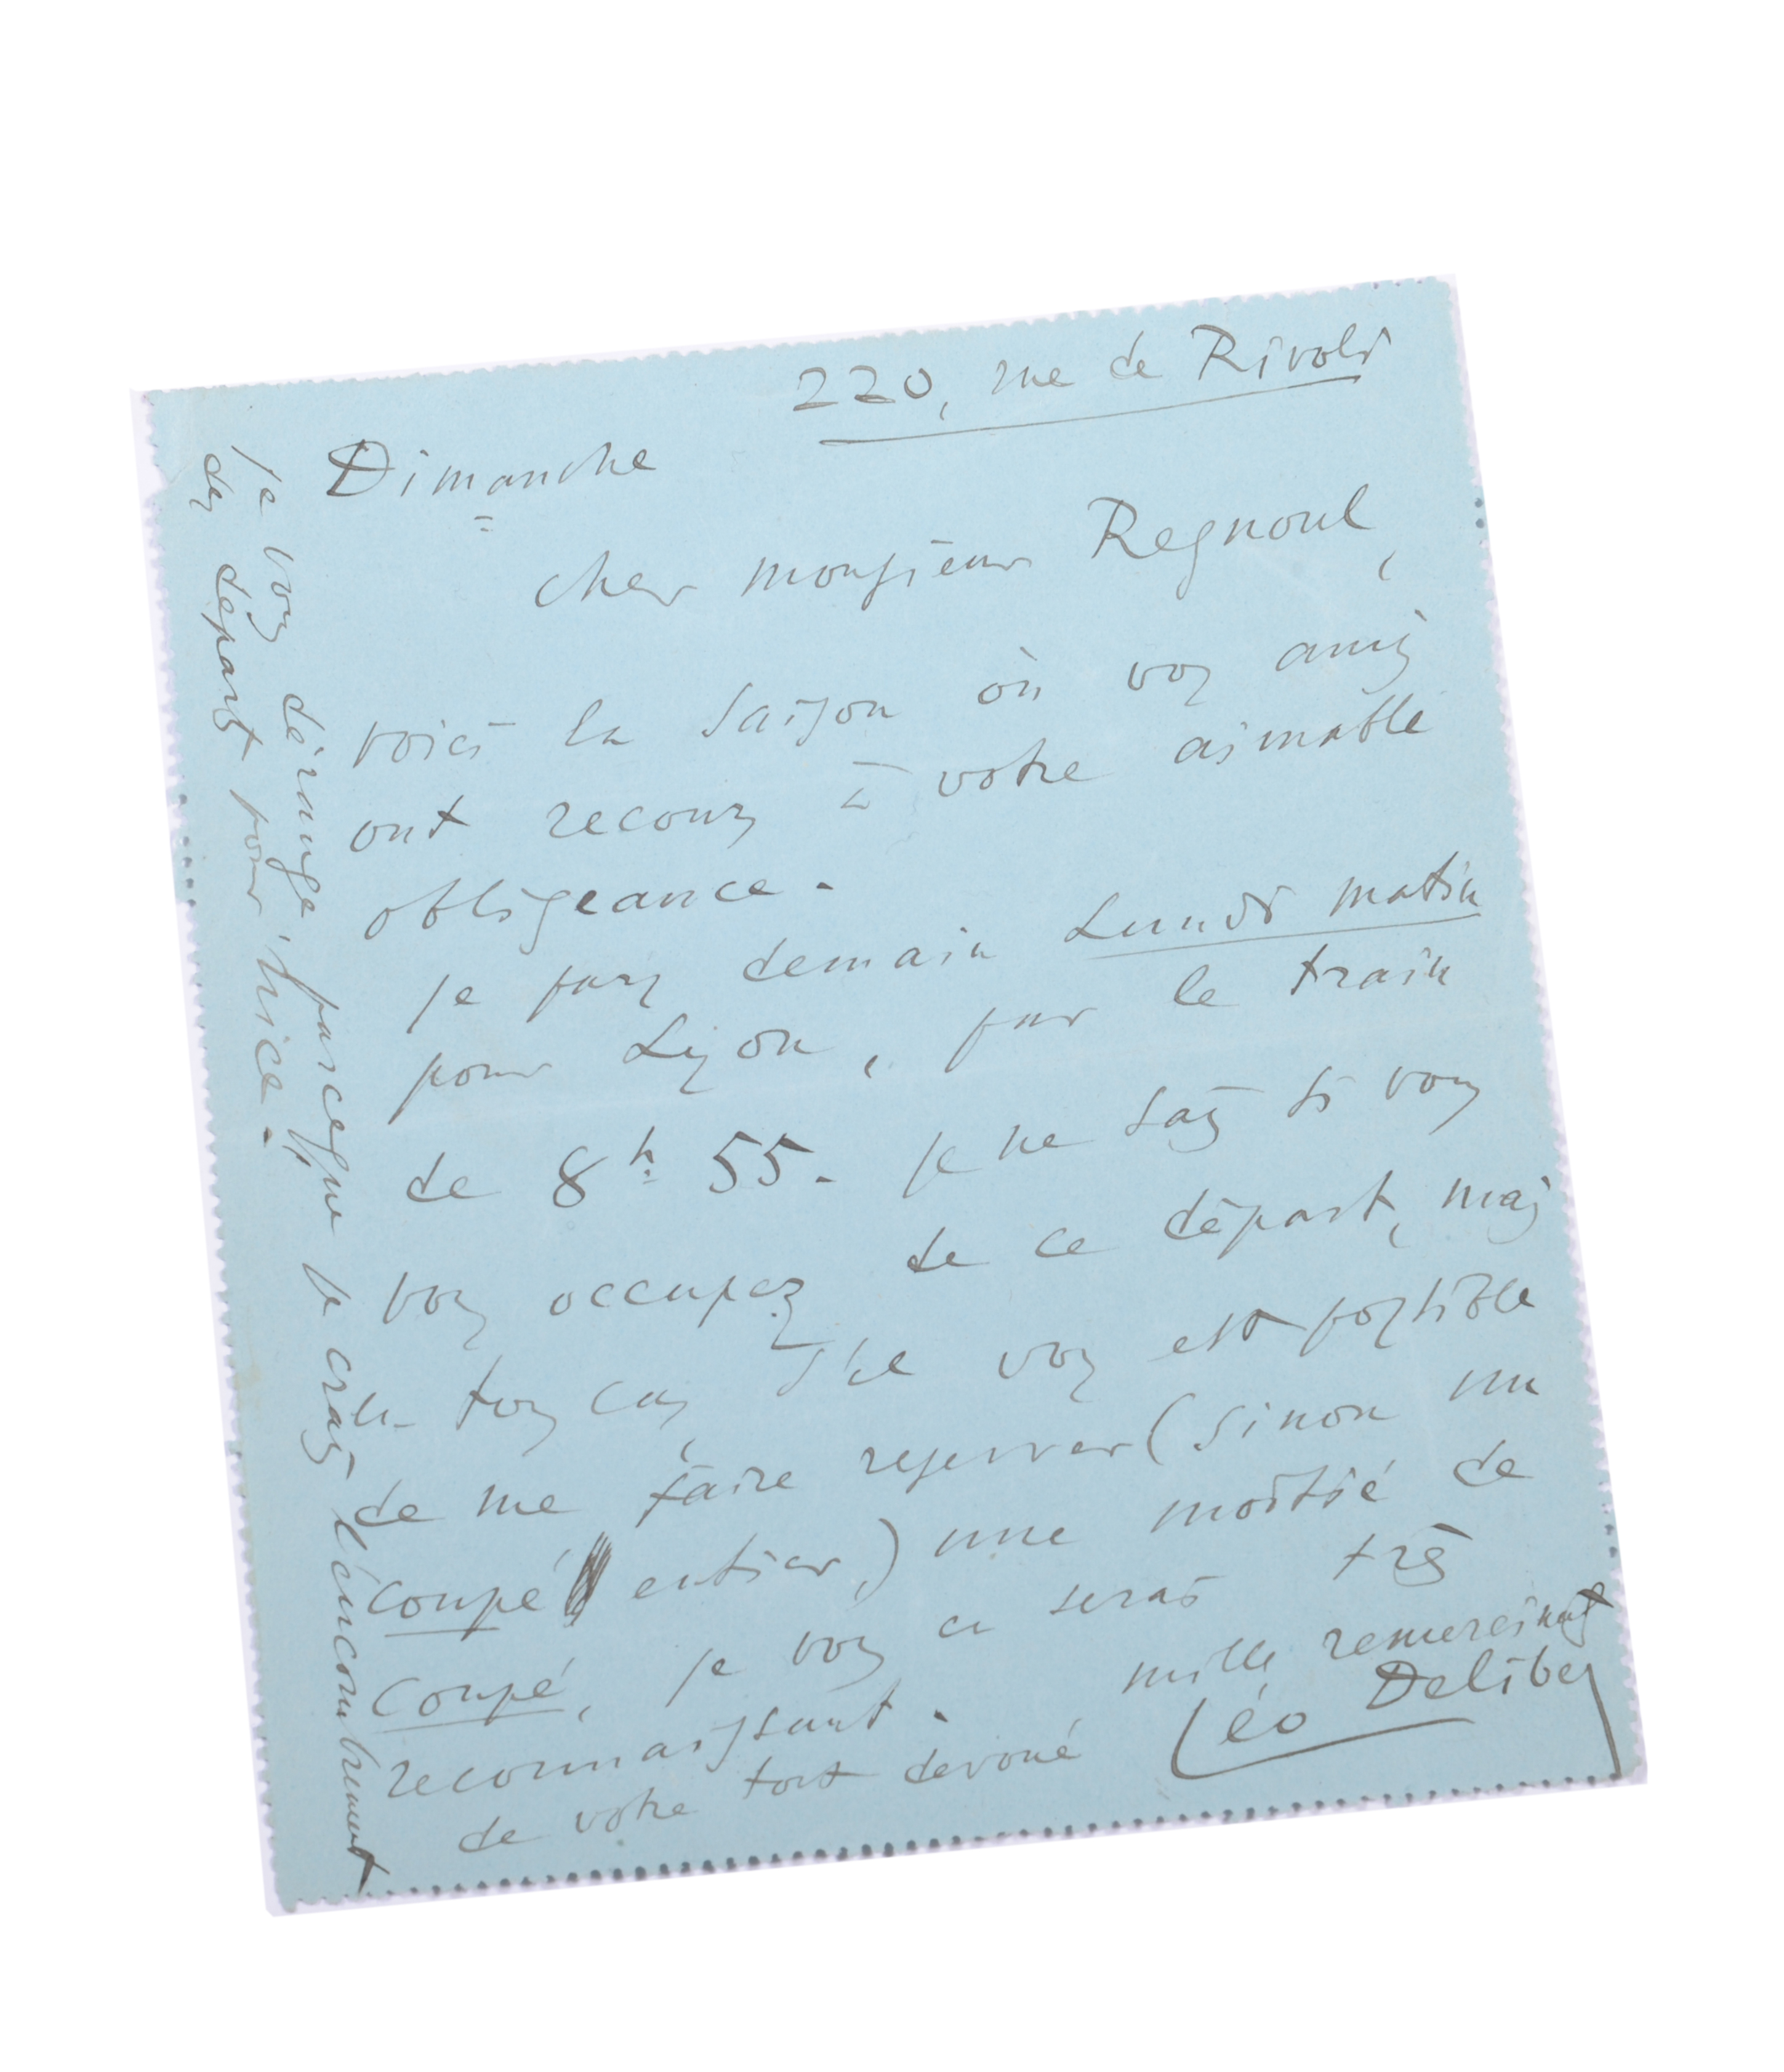 220, rue de Rivoli
Dimanche
Cher monsieur Regnoul,
voici la saison où vos amis
ont recours à votre aimable
obligeance.
je pars demain Lundi matin
pour Lyon, par le train
de 8h 55. je ne sais si vous
vous occupez de ce départ, mais
en tous cas, s'il vous est possible
de me faire réserver (sinon un
coupé entier,) une moitié de
coupé, je vous en serai très
reconnaissant. mille remerciements
de votre tout dévoué Léo Delibes
je vous dérange parceque je crains l'encombrement
des départs pour Nice.